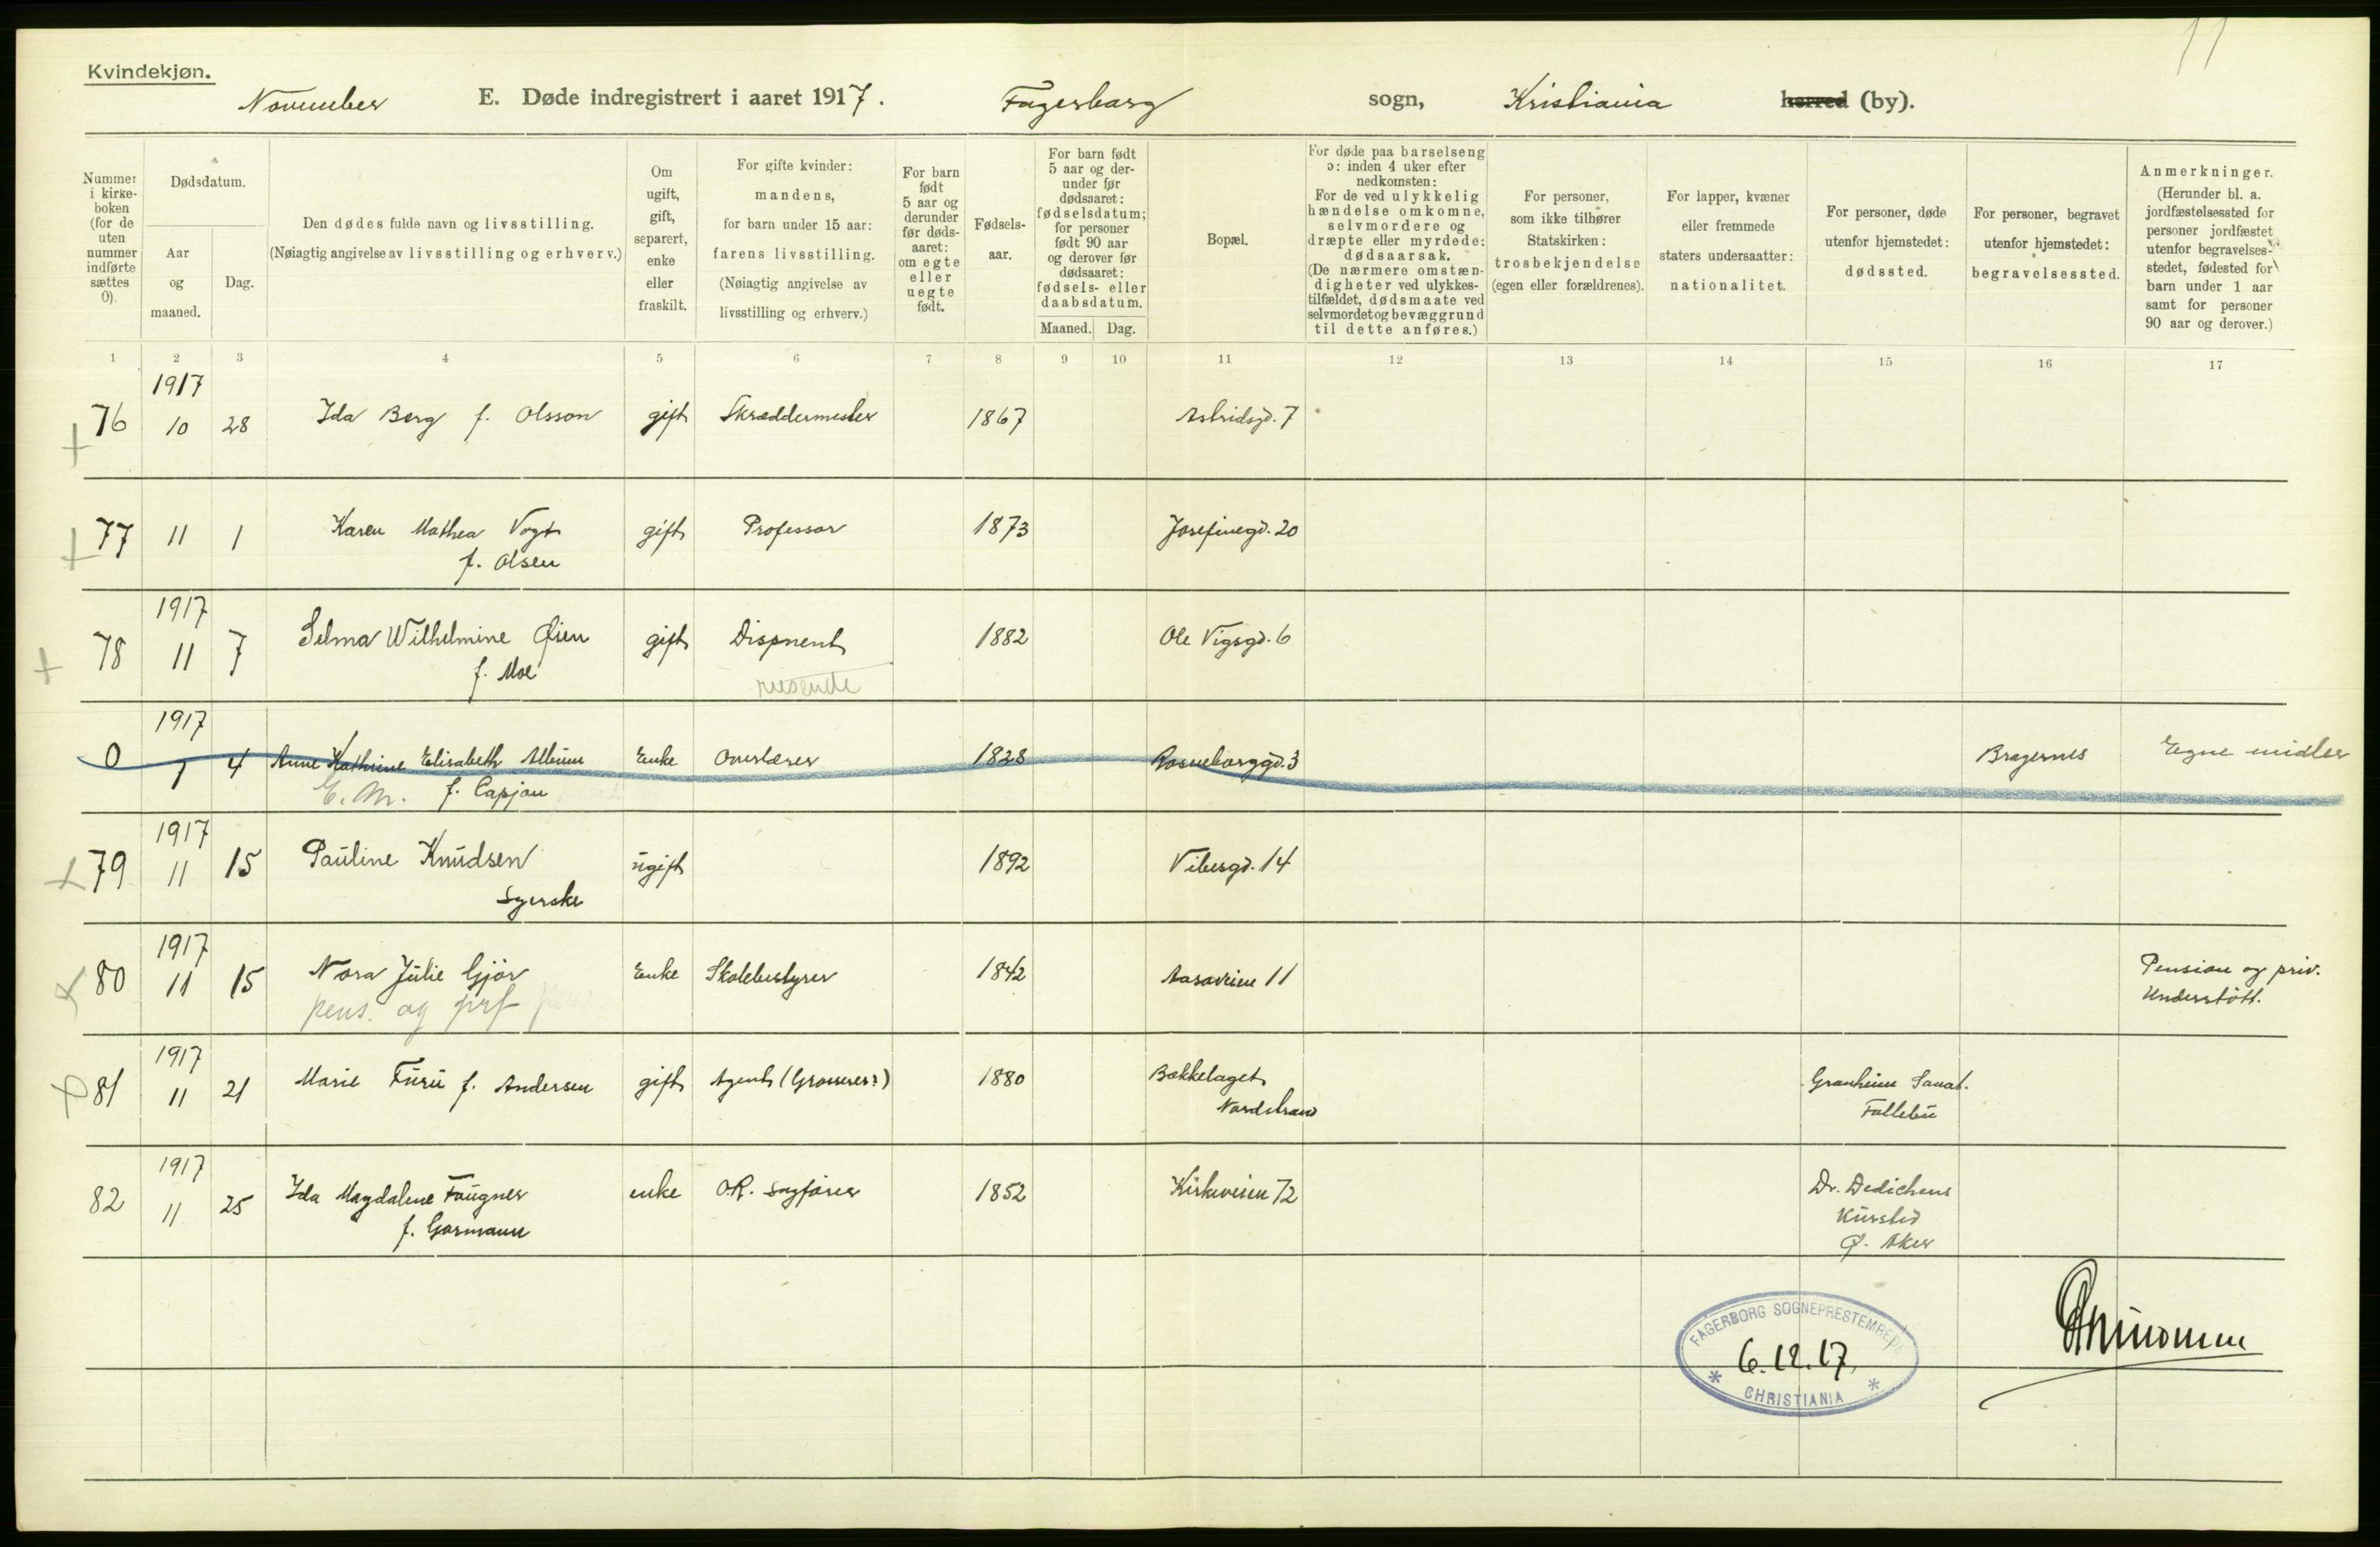 11
Kvindekjøn.
November E. Døde indregistrert i aaret 1917. Fagerborg sogn, Kristiania herred (by).
Nummer i kirke- boken (for de uten nummer indførte sættes 0).
Dødsdatum.
Aar og maaned.
Dag.
Den dødes fulde navn og livsstilling.
(Nøiagtig angivelse av livsstilling og erhverv.)
Om ugift, gift, separert, enke eller fraskilt.
For gifte kvinder: mandens, for barn under 15 aar: farens livsstilling. (Nøiagtig angivelse av livsstilling og erhverv.)
For barn født 5 aar og derunder før døds- aaret: om egte eller uegte født.
Fødsels- aar.
For barn født 5 aar og der- under før dødsaaret: fødselsdatum; for personer født 90 aar og derover før dødsaaret: fødsels- eller daabsdatum.
Maaned. Dag.
Bopæl.
For døde paa barselseng ɔ: inden 4 uker efter nedkomsten: For de ved ulykkelig hændelse omkomne, selvmordere og dræpte eller myrdede: dødsaarsak. (De nærmere omstæn- digheter ved ulykkes- tilfældet, dødsmaate ved selvmordet og bevæggrund til dette anføres.)
For personer, som ikke tilhører Statskirken: trosbekjendelse (egen eller forældrenes).
For lapper, kvæner eller fremmede staters undersaatter: nationalitet.
For personer, døde utenfor hjemstedet: dødssted.
For personer, begravet utenfor hjemstedet: begravelsessted.
Anmerkninger. (Herunder bl. a. jordfæstelsessted for personer jordfæstet utenfor begravelses- stedet, fødested for barn under 1 aar samt for personer 90 aar og derover.)
1 2 3 4 5 6 7 8 9 10 11 12 13 14 15 16 17
1917
76 10 28 Ida Berg f. Olsson gift Skræddermester 1867 Astridsgd. 7
77 11 1 Karen Mathea Vogt gift Professor 1873 Josefinegd. 20
f. Olsen
1917
78 11 7 Selma Wilhelmine Øien gift Disponent 1882 Ole Vigsgd. 6
f. Moe
reisende
1917
0 1 4 Anne Kathrine Elisabeth Album Enke Overlærer 1828 Rosenborggd. 3 Bragernes Egne midler
E. M. f. Capjon
1917
79 11 15 Pauline Knudsen ugift 1892 Vibesgd. 14
Syerske
1917
80 11 15 Nora Julie Gjör Enke Skolebestyrer 1842 Aasaveien 11 Pension og priv.
pens. og Understött.
1917
81 11 21 Marie Furu f. Andersen gift Agent (Grosserer?) 1880 Bækkelaget Granheim Sanat.
Nordstrand Follebu
1917
82 11 25 Ida Magdalene Faugner enke O.R. Sagförer 1852 Kirkeveien 72 Dr. Dedichens
f. Gormann Kursted
Ø. Aker
FAGERBORG SOGNEPRESTEMBEDE
6.12.17.
CHRISTIANIA